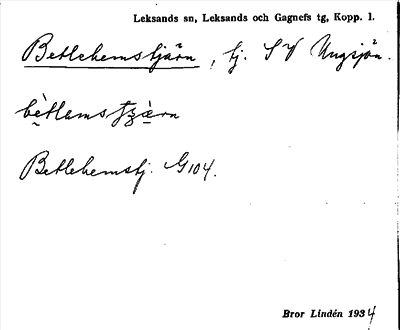 Leksands sn, Leksands och Gagnefs tg, Kopp. l.
Betlehemstjärn, tj. SV Ungsjön.
bètlams
Betlehemstj. G104.
Bror Lindén 1934